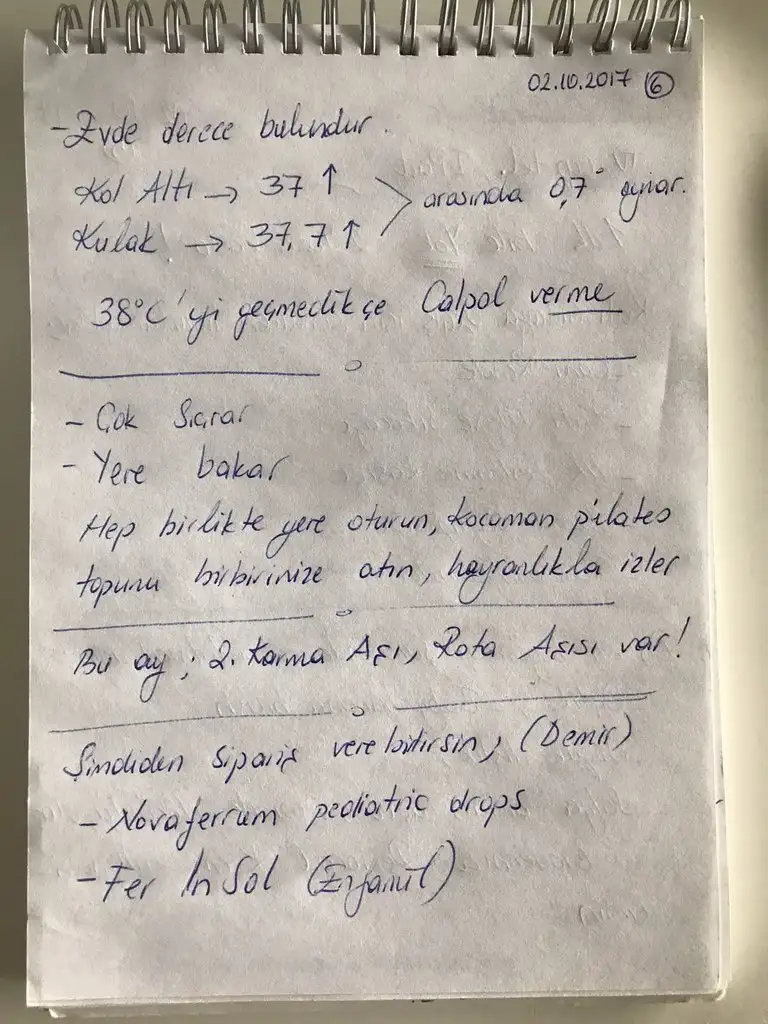 02.10.2017 ⑥
- Evde derece bulundur.
Kol Altı → 37 ↑
Kulak → 37,7 ↑ > arasında 0,7° oynar.
38°C'yi geçmedikçe Calpol verme
- Çok Sıçrar
- Yere bakar
Hep birlikte yere oturun, kocaman pilates
topunu birbirinize atın, hayranlıkla izler
Bu ay ; 2. Karma Aşı, Rota Aşısı var!
Şimdiden sipariş verebilirsin, (Demir)
- Novaferrum pediatric drops
- Fer In Sol (Enfamil)